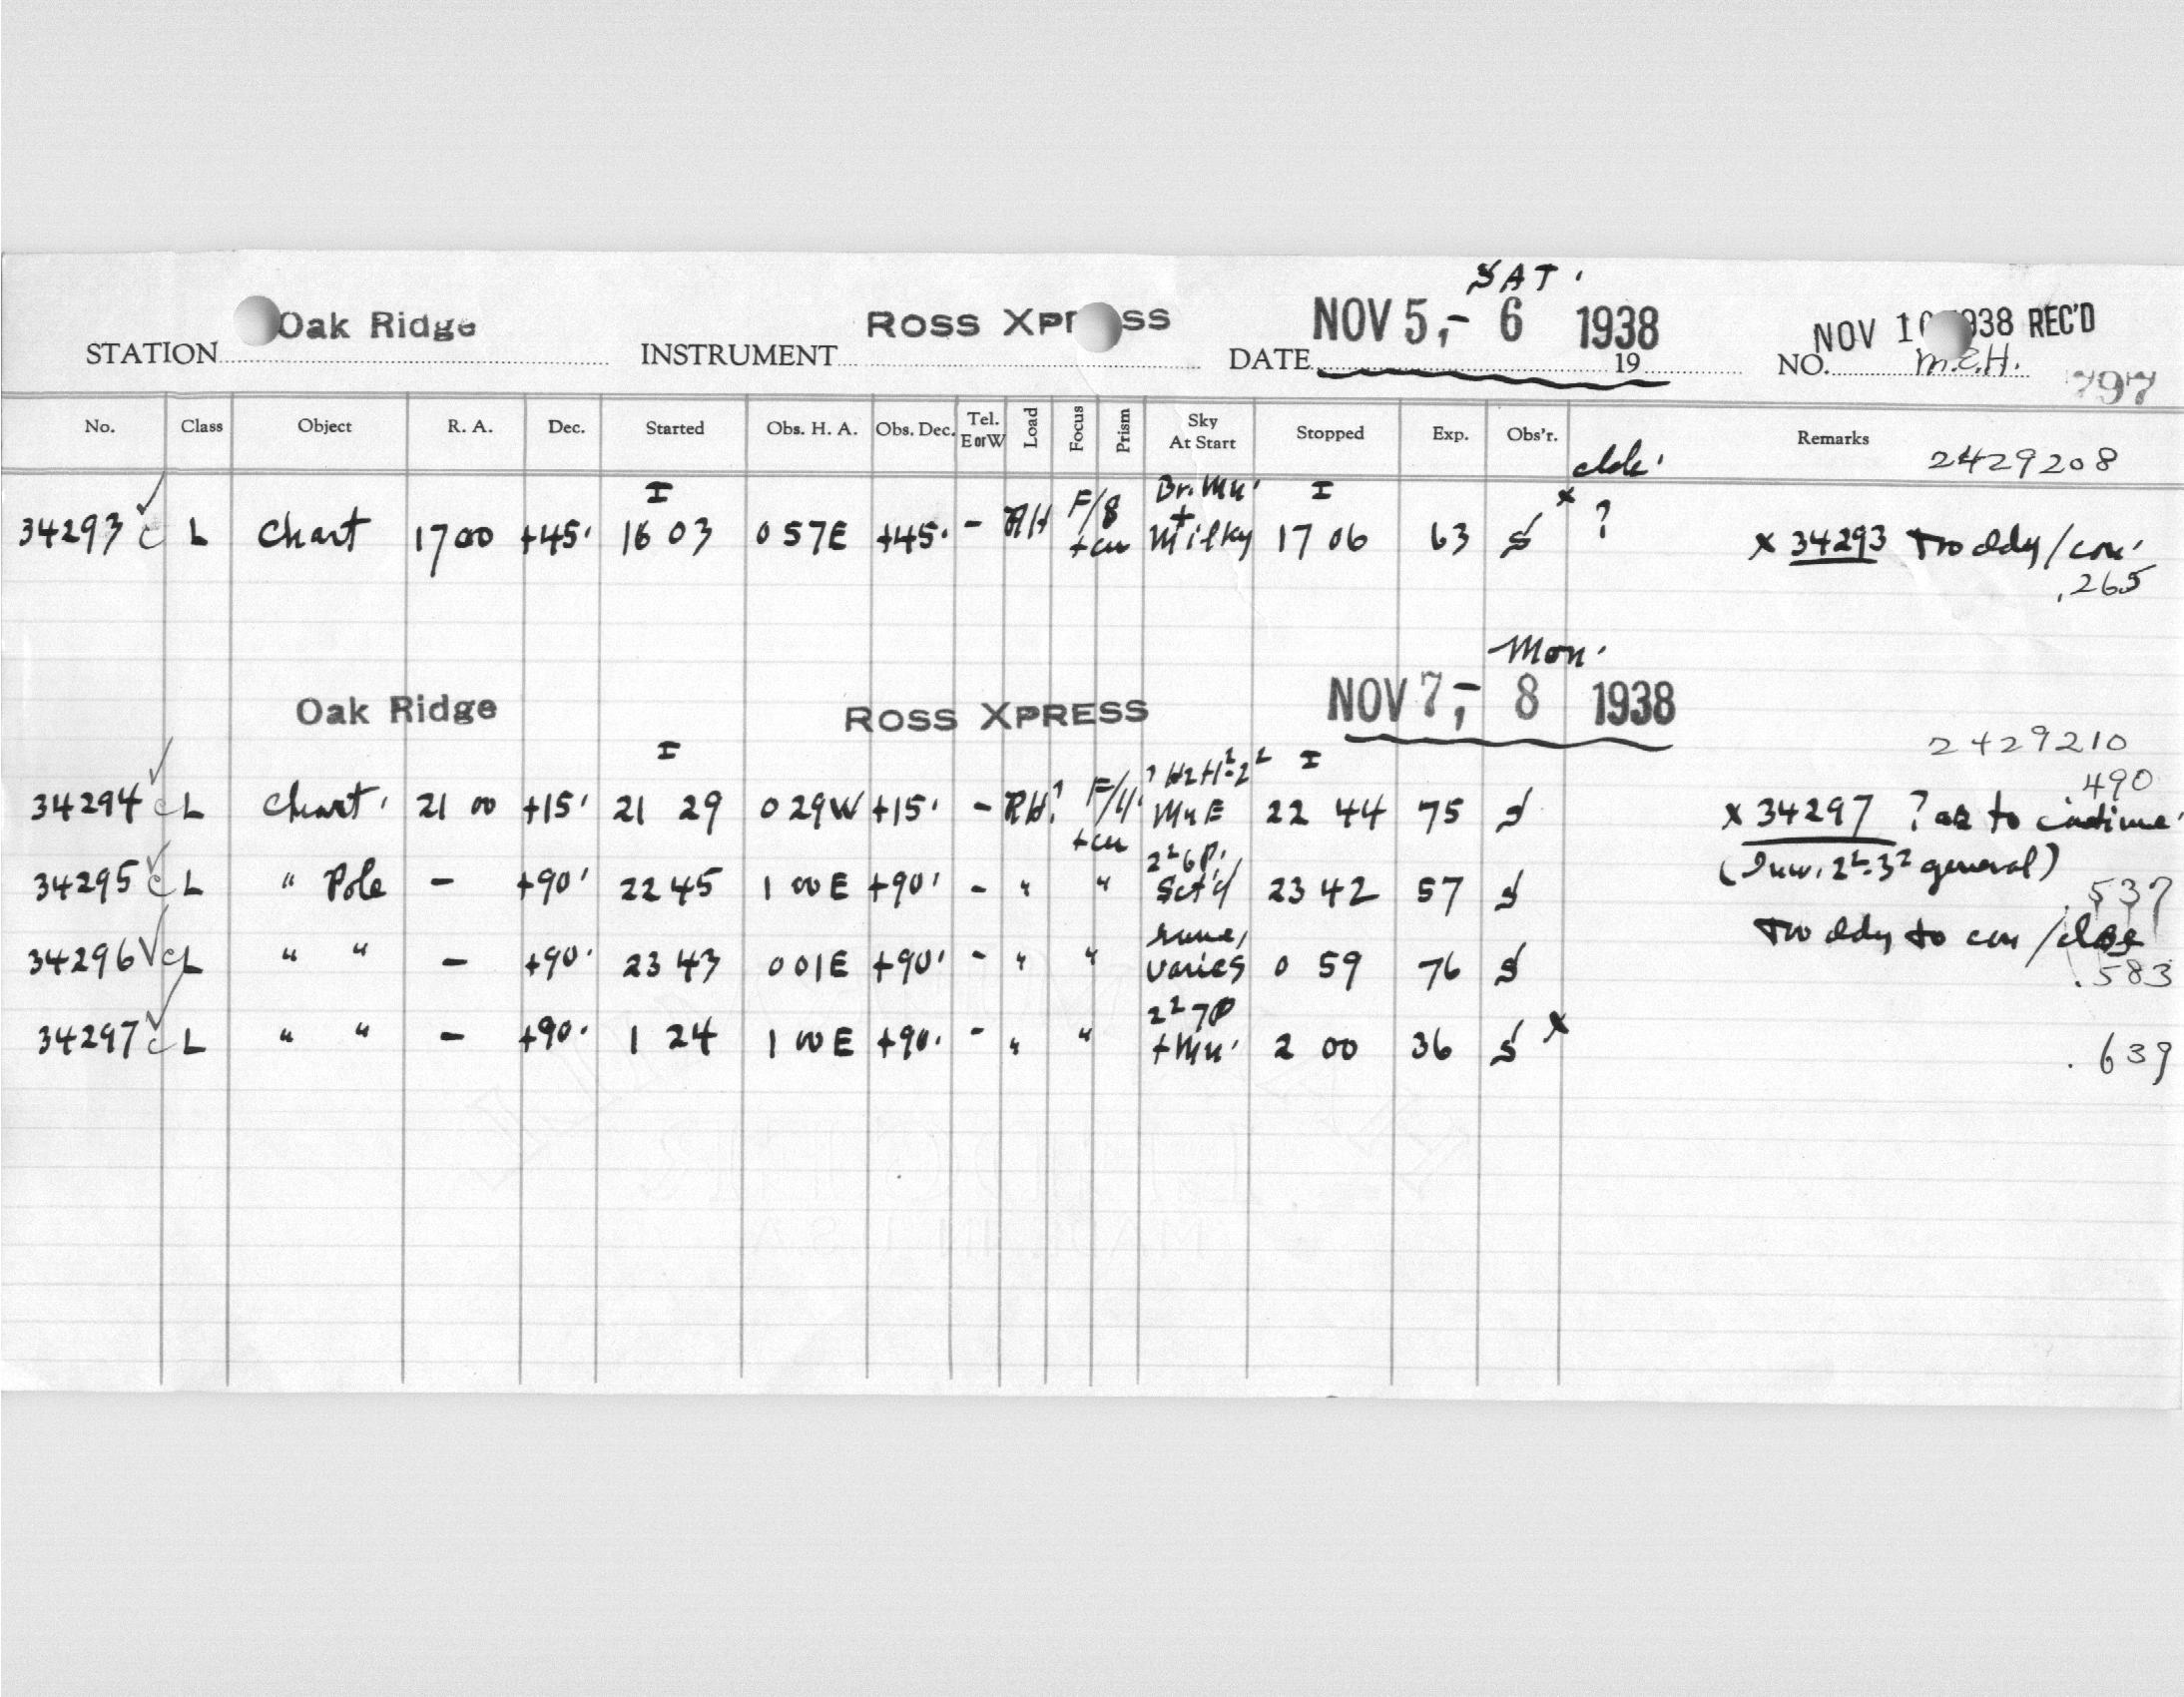 SAT.
STATION Oak Ridge INSTRUMENT Ross Xpr ss DATE NOV 5,- 6 1938 19 NOV 1 938 REC'D
NO. M.E.H. 797
No. Class Object R. A. Dec. Started Obs. H. A. Obs. Dec. Tel. E or W Load Focus Prism Sky At Start Stopped Exp. Obs'r. Remarks 2429208
34293 c L Chart 17 00 +45. 16 03 0 57E +45. - RH F/8 Br. Mn. + Milky 17 06 63 x ? x 34293 Too cldy/con.
.265
Mon.
Oak Ridge Ross Xpress NOV 7,- 8 1938
2429210
.490
34294 c L Chart. 21 00 +15. 21 29 0 29W +15. - RH? Mn E 22 44 75 x 34297 ? as to continue.
34295 c L " Pole - +90. 22 45 1 00E +90. - " " Sct'd 23 42 57 general)
.537
34296 c L " " - +90. 23 43 0 01E +90. - " " varies 0 59 76 Too cldy to con/close
.583
34297 c L " " - +90. 1 24 1 00E +90. - " " +Mn. 2 00 36 x
.639